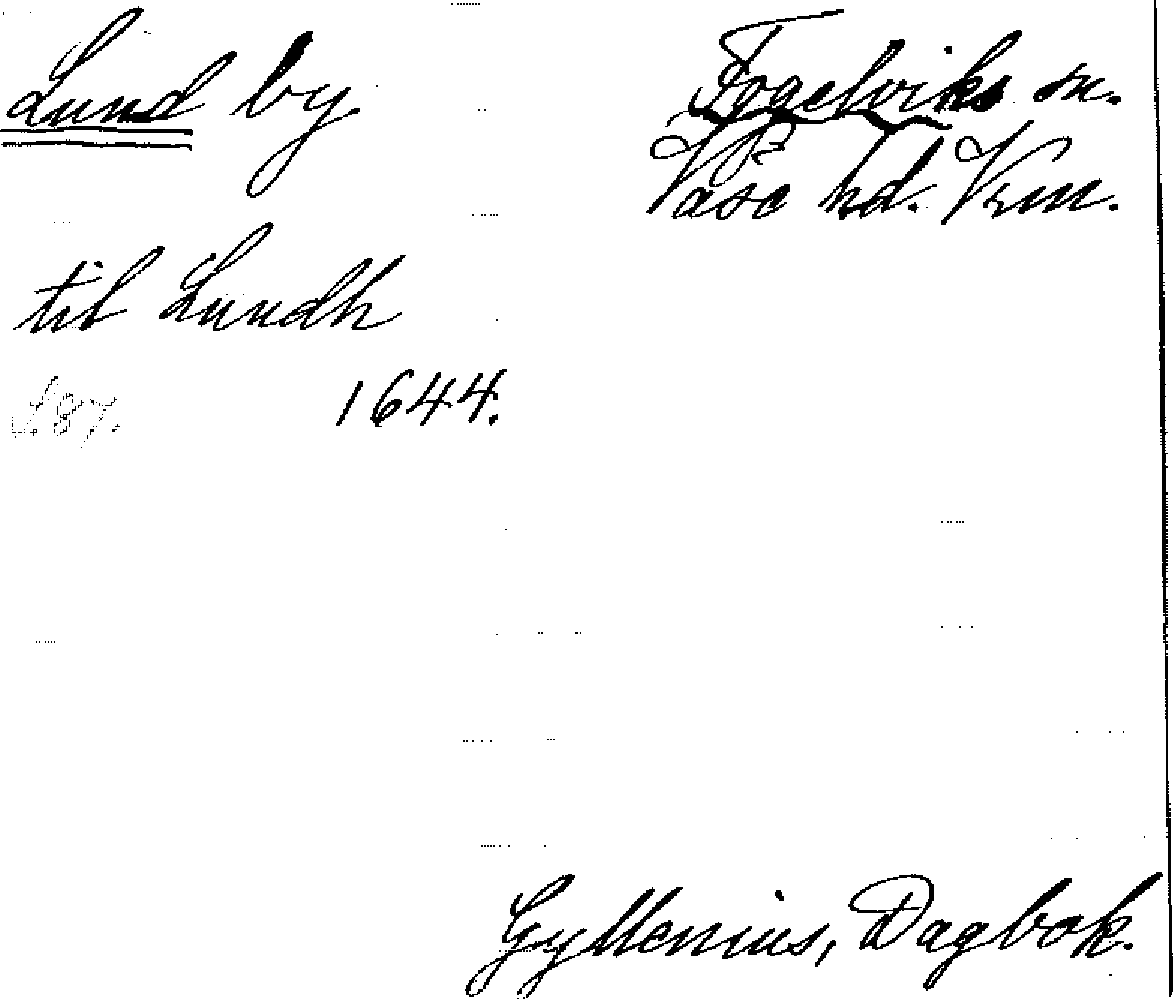 Lund by.
Fogelviks sn.
Väse hd. Vrm.
til Lundh
S. 87.
1644.
Gyllenius, Dagbok.